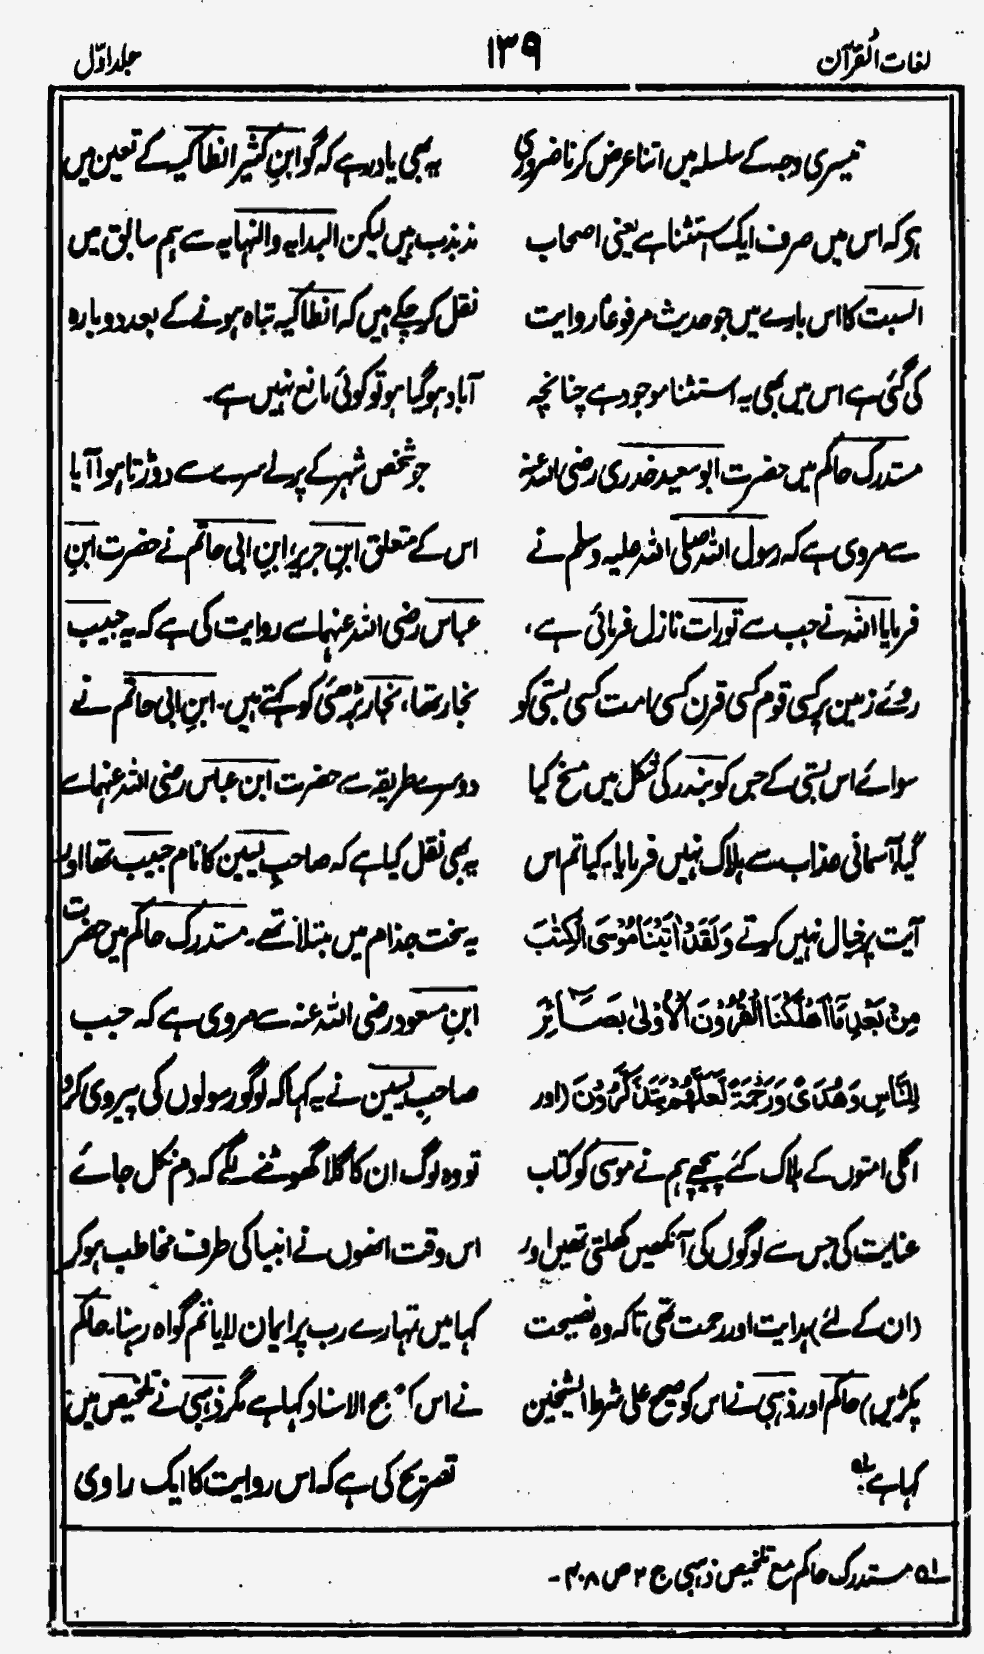 لغات القرآن
۱۳۹
جلد اوّل
تیسری وجہ کے سلسلہ میں اتنا عرض کرنا ضروری
ہے کہ اس میں صرف ایک استثنا ہے یعنی اصحاب
السبت کا اس بارے میں جو حدیث مرفوعاً روایت
کی گئی ہے اس میں بھی یہ استثنا موجود ہے چنانچہ
مستدرک حاکم میں حضرت ابو سعید خدری رضی اللہ عنہ
سے مروی ہے کہ رسول اللہ صلی اللہ علیہ وسلم نے
فرمایا اللہ نے جب سے تورات نازل فرمائی ہے،
روئے زمین پر کسی قوم کسی قرن کسی امت کسی بستی کو
سوائے اس بستی کے جس کو بندر کی شکل میں مسخ کیا
گیا آسمانی عذاب سے ہلاک نہیں فرمایا۔ کیا تم اس
آیت پر خیال نہیں کرتے وَلَقَدْ اٰتَیْنَا مُوْسَی الْکِتٰبَ
مِنْۢ بَعْدِ مَآ اَھْلَکْنَا الْقُرُوْنَ الْاُوْلٰی بَصَآئِرَ
لِلنَّاسِ وَھُدًی وَّرَحْمَۃً لَّعَلَّھُمْ یَتَذَکَّرُوْنَ (اور
اگلی امتوں کے ہلاک کئے پیچھے ہم نے موسی کو کتاب
عنایت کی جس سے لوگوں کی آنکھیں کھلتی تھیں اور
(ان کے لئے) ہدایت اور رحمت تھی تاکہ وہ نصیحت
پکڑیں) حاکم اور ذہبی نے اس کو صحیح علی شرط الشیخین
کہا ہے لہ
یہ بھی یاد رہے کہ گو ابنِ کثیر انطاکیہ کے تعین میں
مذبذب ہیں لیکن البدایہ والنہایہ سے ہم سابق میں
نقل کر چکے ہیں کہ انطاکیہ تباہ ہونے کے بعد دوبارہ
آباد ہو گیا ہو تو کوئی مانع نہیں ہے۔
جو شخص شہر کے پرلے سرے سے دوڑتا ہوا آیا
اس کے متعلق ابنِ جریر، ابنِ ابی حاتم نے حضرت ابنِ
عباس رضی اللہ عنہما سے روایت کی ہے کہ یہ حبیب
نجار تھا، نجار بڑھئی کو کہتے ہیں۔ ابنِ ابی حاتم نے
دوسرے طریقہ سے حضرت ابن عباس رضی اللہ عنہما سے
یہ بھی نقل کیا ہے کہ صاحبِ یٰسین کا نام حبیب تھا اور
یہ سخت جذام میں مبتلا تھے۔ مستدرک حاکم میں حضرت
ابنِ مسعود رضی اللہ عنہ سے مروی ہے کہ جب
صاحبِ یٰسین نے یہ کہا کہ لوگو رسولوں کی پیروی کرو
تو وہ لوگ ان کا گلا گھوٹنے لگے کہ دم نکل جائے
اس وقت انھوں نے انبیا کی طرف مخاطب ہو کر
کہا میں تمہارے رب پر ایمان لایا تم گواہ رہنا۔ حاکم
نے اس کو صحیح الاسناد کہا ہے مگر ذہبی نے تلخیص میں
تصریح کی ہے کہ اس روایت کا ایک راوی
لہ مستدرک حاکم مع تلخیص ذہبی ج ۲ ص ۴۰۸۔